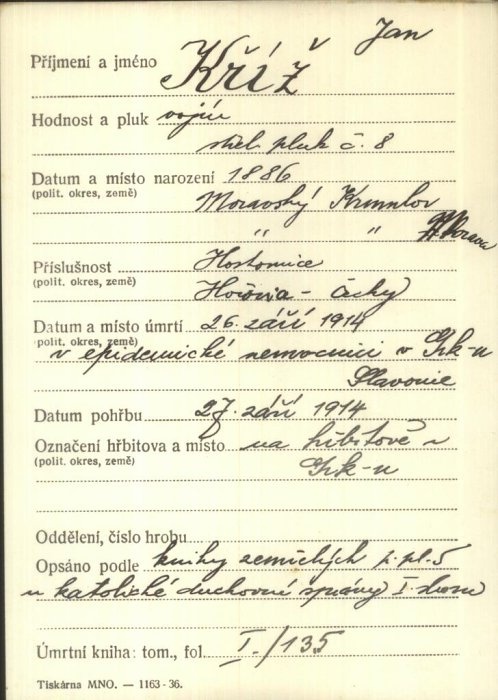 Jan
Příjmení a jméno Kříž
Hodnost a pluk vojín
střel. pluk č. 8
Datum a místo narození 1886
(polit. okres, země) Moravský Krumlov
" " Morava
Příslušnost Hostomice
(polit. okres, země) Hořovia - Čechy
Datum a místo úmrtí 26. září 1914
polit. okres, země)
v epidemické nemocnici v Grk-u
Slavonie
Datum pohřbu 27. září 1914
Označení hřbitova a místo na hřbitově v
(polit. okres, země) Grk-u
Oddělení, číslo hrobu
Opsáno podle knihy zemřelých p. pl. 5
u katolické duchovné správy I.
Úmrtní kniha: tom., fol. I./135
Tiskárna MNO. — 1163-36.